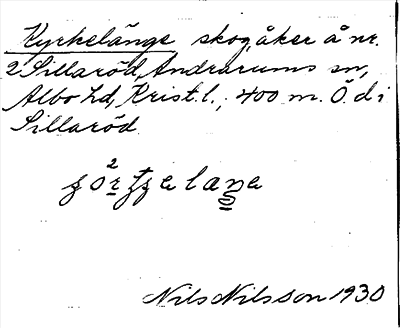 Kyrkelänge skog, åker å nr.
2 Sillaröd, Andrarums sn,
Albo hd, Krist. l., 400 m. Ö. d i
Sillaröd.
Nils Nilsson 1930